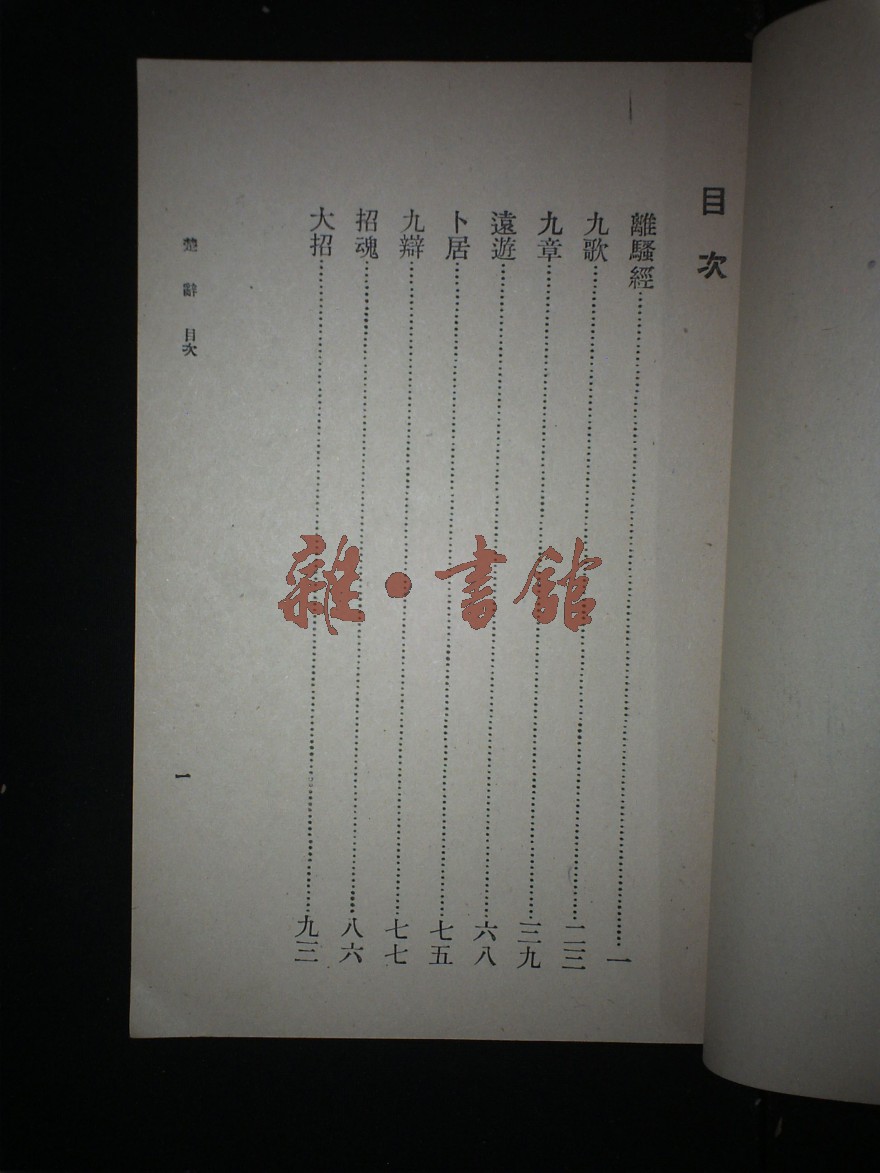 目次
離騷經……一
九歌……二三
九章……三九
遠遊……六八
卜居……七五
九辯……七七
招魂……八六
大招……九三
楚辭 目次
一
雜·書館